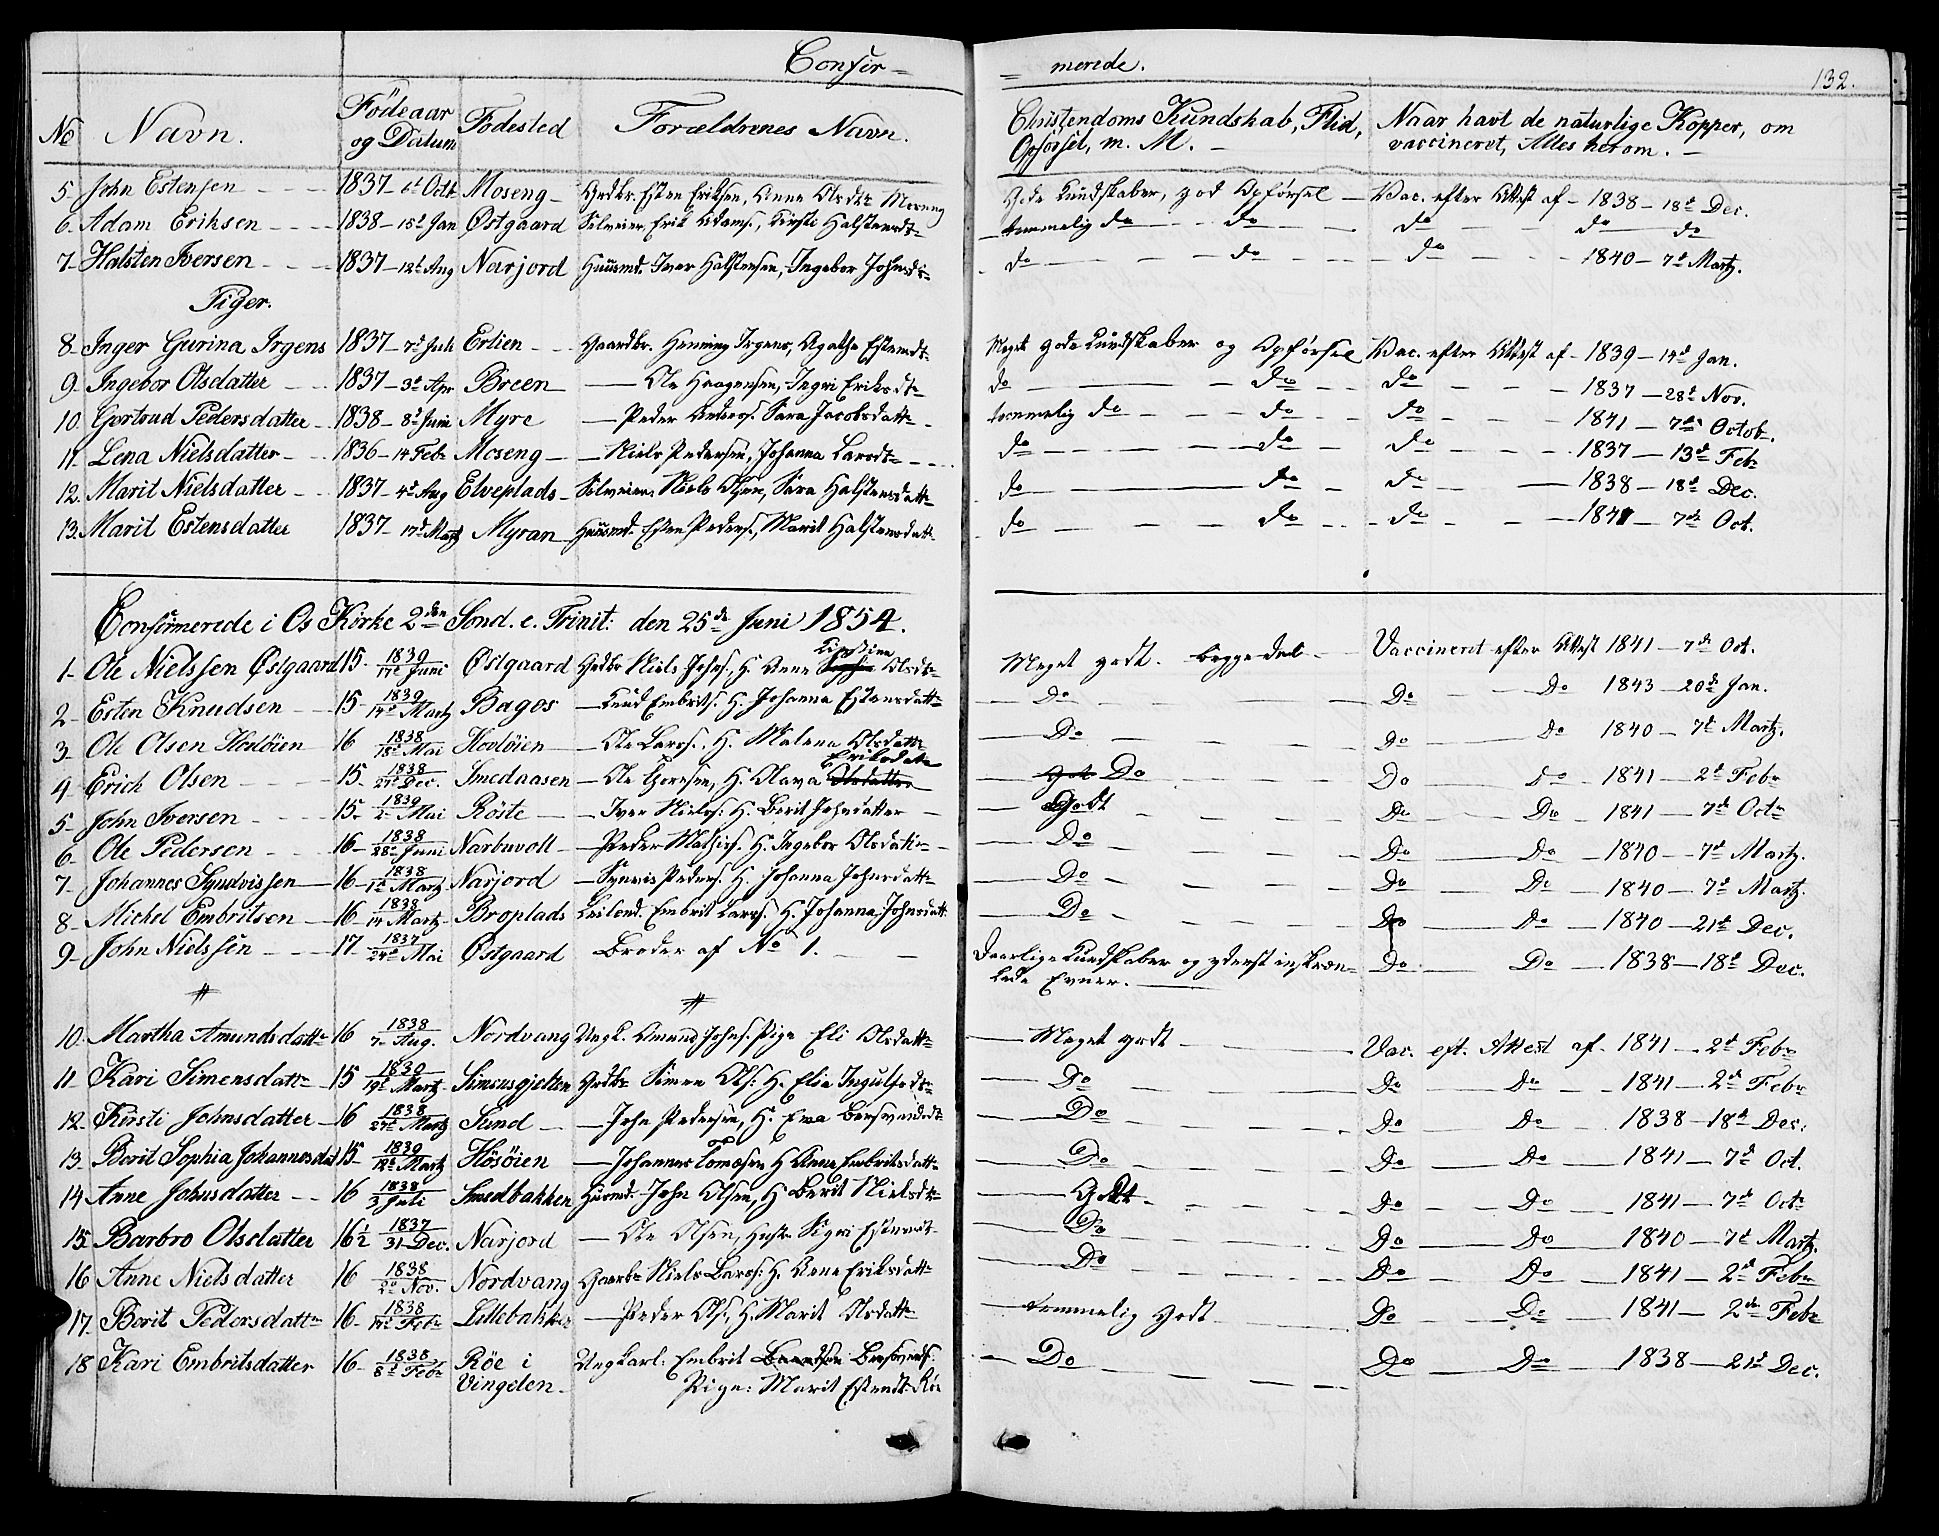 Confir= = merede. 132.
No Navn. Födeaar og Datum Fodested Forældrenes Navn. Christendoms Kundskab, Flid, Opförsel, m. M. - Naar havt de naturlige Kopper, om vaccineret, Attes herom. -
5. John Estensen 1837 - 6t Octb Moseng Grdbr. Esten Eriksen, Anne Olsdtr Moseng Gode Kundskaber, god Opförsel - Vac. efter Attest af - 1838 - 18d Dec.
6. Adam Eriksen 1838 - 15d Jan Østgaard Selveier Erik Adams., Kirsti Halstensdtr temmelig do do do do do
7. Halsten Iversen 1837 - 12t Aug Narjord Huusmd. Iver Halstensen, Ingebor Johnsd. do do do 1840 - 7d Martz.
Piger.
8. Inger Gurina Irgens 1837 - 7d Juli Erlien Gaardbr. Henning Irgens, Agathe Estensdtr Meget gode Kundskaber og Opförsel Vac. efter Attest af - 1839 - 14d Jan.
9. Ingebor Olsdatter 1837 - 3d Apr Breen - Ole Haagensen, Ingri Eriksdtr do do do 1837 - 28d Nov.
10. Gortrud Pedersdatter 1838 - 8d Juni Myre - Peder Anders. Sara Jacobsdattr temmelig do do do 1841 - 7de Octob.
11. Lena Nielsdatter 1836 - 14 Febr Moseng - Niels Pedersen, Johanna Larsdtr do do do 1837 - 13d Febr
12. Marit Nielsdatter 1837 - 4d Aug Elveplads Selveier Niels Olsen, Sara Halstensdattr do do do 1838 - 18d Dec.
13. Marit Estensdatter 1837 - 17d Martz Myran Huusmd. Esten Peders., Marit Halstensdattr do do do 1841 - 7de Oct.
Confirmerede i Os Kirke 2den Sond. e. Trinit: den 25de Juni 1854.
1. Ole Nielssen Østgaard 15 - 1839 17d Juni Østgaard Grdbr Niels Johns., H. Anne Olsdtr Meget godt. begge del - Vaccineret efter Attest 1841 - 7de Oct.
2. Esten Knudsen 15 - 1839 14d Martz Bagos - Knud Embrits. H. Johanna Estensdattr Do Do Do 1843 - 20de Jan.
3. Ole Olsen Hovlöien 16 1838 18d Mai Hovlöien - Ole Lars., H. Malena Olsdattr Do Do Do 1840 - 7d Martz.
4. Erich Olsen 15 - 1838 27d Dec. Smedaasen - Ole Thoresen, H. Olava Eriksdatr Do Do Do 1841 - 2d Febr
5. John Iversen 15 - 1839 2 Mai Röste - Iver Niels. H. Berit Johnsdatter Godt Do Do 1841 - 7de Octr
6. Ole Pedersen 16 - 1838 28d Juni Narbuvoll - Peder Mathis. H. Ingebor Olsdattr Do Do Do 1840 - 7d Martz.
7. Johannes Syverssen 16 - 1838 1d Martz Narjord - Syvers Peders. H. Johanna Johnsdattr Do Do Do 1840 - 7d Martz.
8. Michel Embritsen 16 1838 14 Martz Broplads Leilend. Embrit Lars. H. Johanna Johnsdatt. Do Do Do 1840 - 21de Dec.
9. John Nielssen 17 - 1837 24d Mai Østgaard Broder af No 1. Daarlige Kundskaber og yderst inskræn= kede Evner. Do Do 1838 - 18d Dec.
10. Martha Amundsdattr 16 1838 7 Aug. Nordvang Ungk. Amund Johns. Pige Eli Olsdattr Meget godt Vac. eft. Attest af - 1841 - 2d Febr
11. Kari Simensdattr 15 1839 19d Martz Simensgjelten Grdbr Simen Ols. H. Elie Ingulfsdr Do Do Do 1841 - 2de Febr
12. Kirsti Johnsdatter 16 1838 24d Martz Sund - John Pedersen, H. Ewa Bersvendsdtr Do Do Do 1838 - 18d Dec.
13. Berit Sophia Johannesdat 15 - 1839 12d Martz Hösöien - Johannes Tomæsen H Anne Embritsdattr Do Do Do 1841 - 7d Oct.
14 Anne Johnsdatter 16 1838 3 Juli Smedbakken Huusmd. John Olsen, H. Berit Nielsdtr Godt Do Do 1841 - 7d Octr
15. Barbro Olsdatter 16½ 1837 31 Dec. Narjord - Ole Olsen, Hustr Sigri Estensdt Do Do Do 1840 - 7d Martz.
16 Anne Nielsdatter 16 1838 2d Nov. Nordvang Gaardbr Niels Lars. H. Anne Eriksdattr Do Do Do 1841 - 2d Febr
17. Berit Pedersdattr 16 - 1838 Febr Lillebakken - Peder Ols. H. Marit Olsdattr temmelig godt Do Do 1841 - 2de Febr
18 Kari Embritsdatter 16 - 1838 8d Febr Röe i Vingelen. Ungkarl: Embrit Bersvends. Pige: Marit Estensdt. Röe Do Do Do 1838 - 21d Dec.